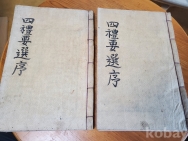 四禮要選序
四禮要選序
kobay